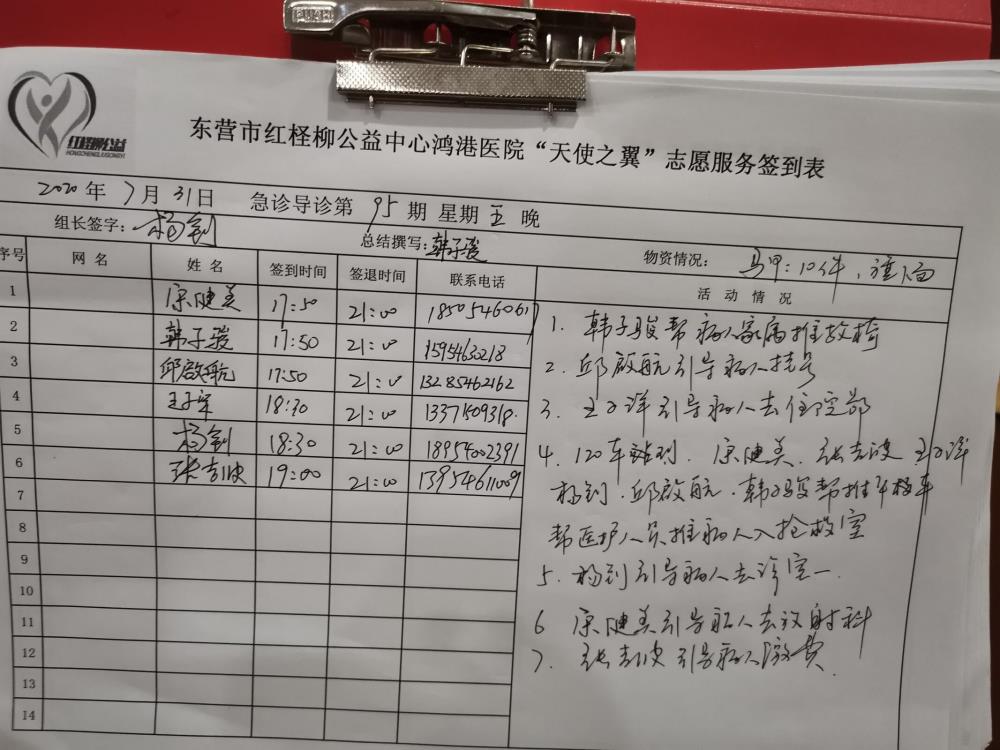 PUSH
红柽柳公益
HONGCHENGLIUGONGYI
东营市红柽柳公益中心鸿港医院“天使之翼”志愿服务签到表
2020 年 7 月 31 日 急诊导诊第 95 期 星期 五 晚
组长签字: 杨钊 总结撰写: 韩子骏 物资情况: 马甲:10件,
序号 网 名 姓 名 签到时间 签退时间 联系电话 活 动 情 况
1 康健美 17:50 21:00 18505460617
2 韩子骏 17:50 21:00 15954630218
3 邱啟航 17:50 21:00 13285462162
4 18:30 21:00 13371509318
5 杨钊 18:30 21:00 18954002391
6 张吉波 19:00 21:00 13954611009
7
8
9
10
11
12
13
14
1. 韩子骏帮病人家属推轮椅
2. 邱啟航引导病人挂号
3. 王子洋引导病人去住院部
4. 120车 康健美. 张吉波 王子洋
杨钊. 邱啟航. 韩子骏帮推平板车
帮医护人员推病人入抢救室
5. 杨钊引导病人去诊室一.
6 康健美引导病人去放射科
7. 张吉波引导病人缴费.